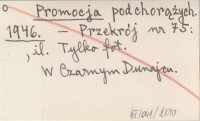 o
Promocja podchorążych.
1946. – Przekrój nr 75:
, il. Tylko fot.
W Czarnym Dunajcu.